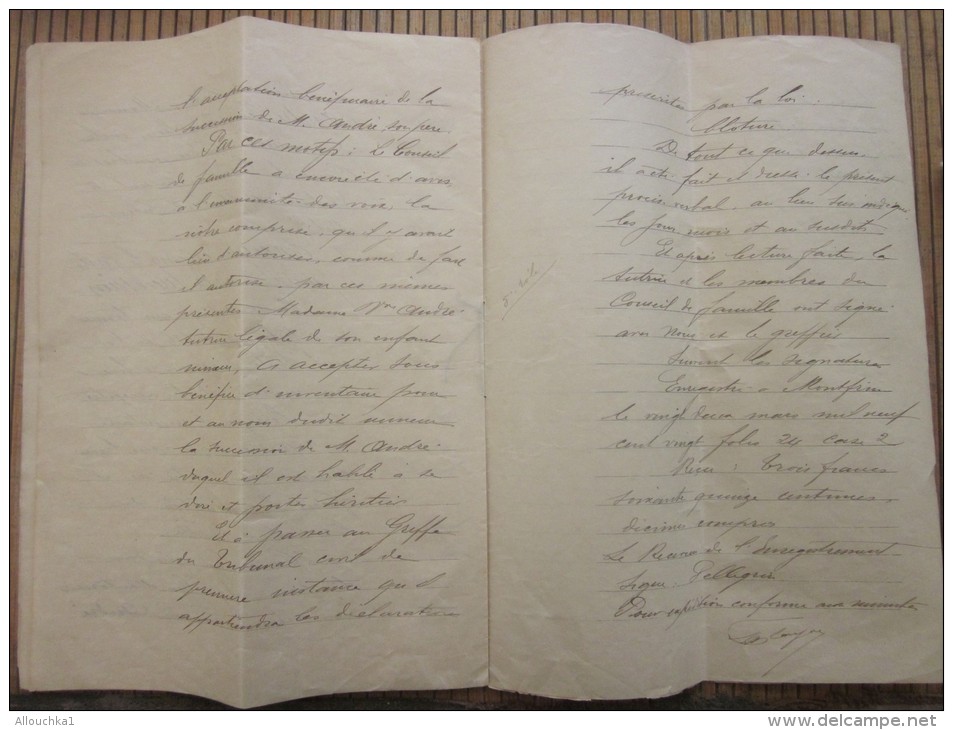 l'acceptation bénéficiaire de la
succession de M. André, son père.
Par ces motifs ; Le Conseil
de famille a encore été d'avis
à l'unanimité des voix, la
nôtre comprise, qu'il y avait
lieu d'autoriser, comme de fait
il autorise par ces mêmes
présentes Madame Vve André
tutrice légale de son enfant
mineur, à accepter sous
bénéfice d'inventaire pour
et au nom dudit mineur
la succession de M. André
duquel il est habile à se
dire et porter héritier
et à passer au Greffe
du Tribunal civil de
première instance qu'il
appartiendra les déclarations
5e rôle
prescrites par la loi.
Clôture.
De tout ce que dessus
il a été fait et dressé le présent
procès-verbal, au lieu sus indiqué
les jour mois et an susdits
Et après lecture faite, la
tutrice et les membres du
Conseil de famille ont signé
avec Nous et le greffier
Suivent les signatures
Enregistré à Montfrin
le vingt deux mars mil neuf
cent vingt folio 24 case 2
Reçu : trois francs
soixante quinze centimes
décimes compris
Le Receveur de l'Enregistrement
signé Pellegrin
Pour expédition conforme aux minutes
Allouchka1
www.delcampe.net